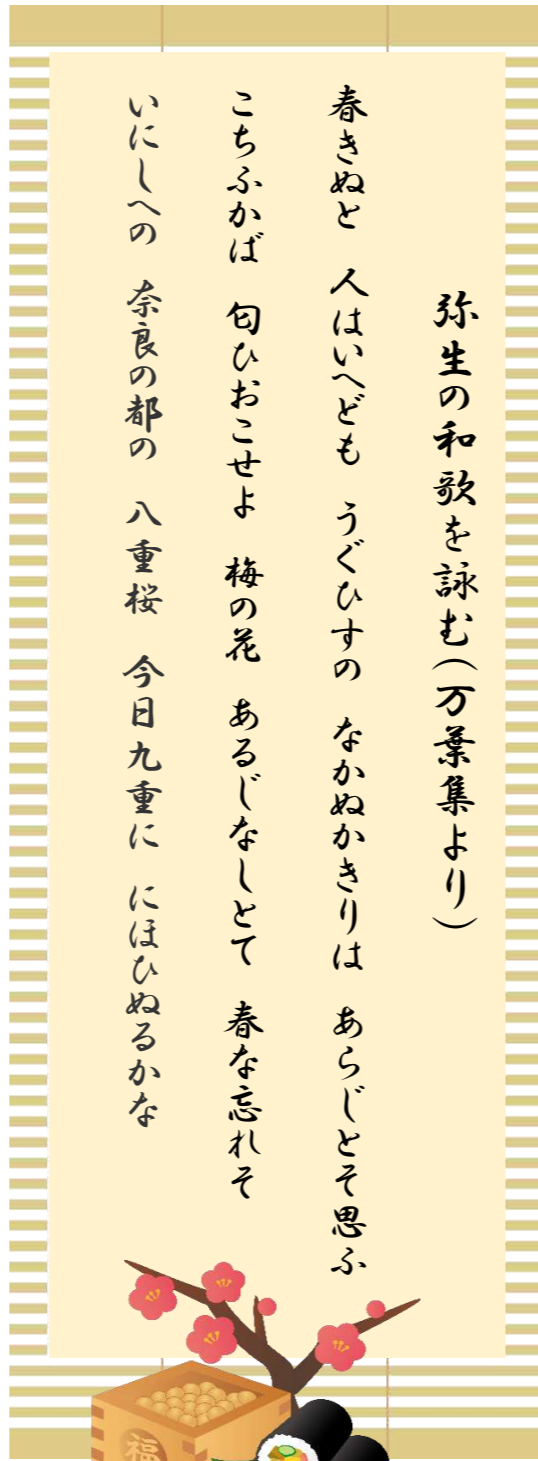 弥生の和歌を詠む(万葉集より)
春きぬと　人はいへども　うぐひすの　なかぬかきりは　あらじとそ思ふ
こちふかば　匂ひおこせよ　梅の花　あるじなしとて　春な忘れそ
いにしへの　奈良の都の　八重桜　今日九重に　にほひぬるかな
福